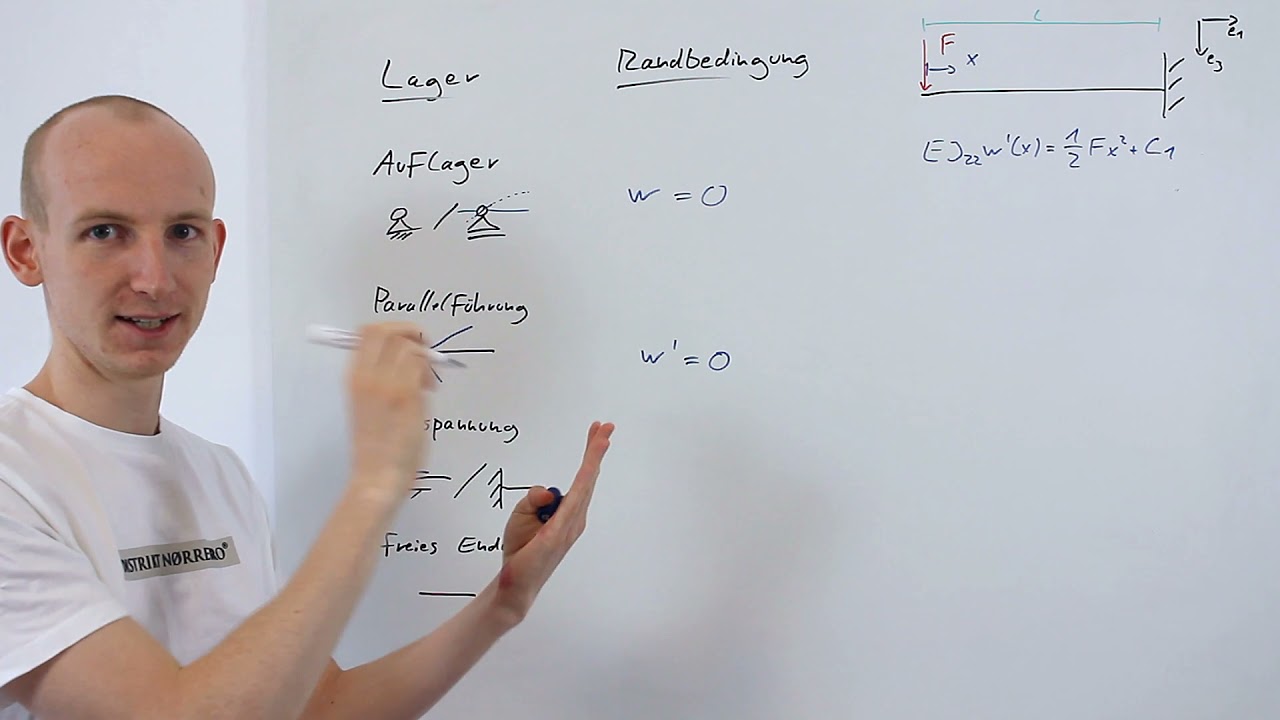 Lager
Randbedingung
Auflager
w = 0
Parallelführung
w' = 0
spannung
Freies
L
F
x
e₁
e₃
EJ₂₂w'(x) = ½Fx² + C₁